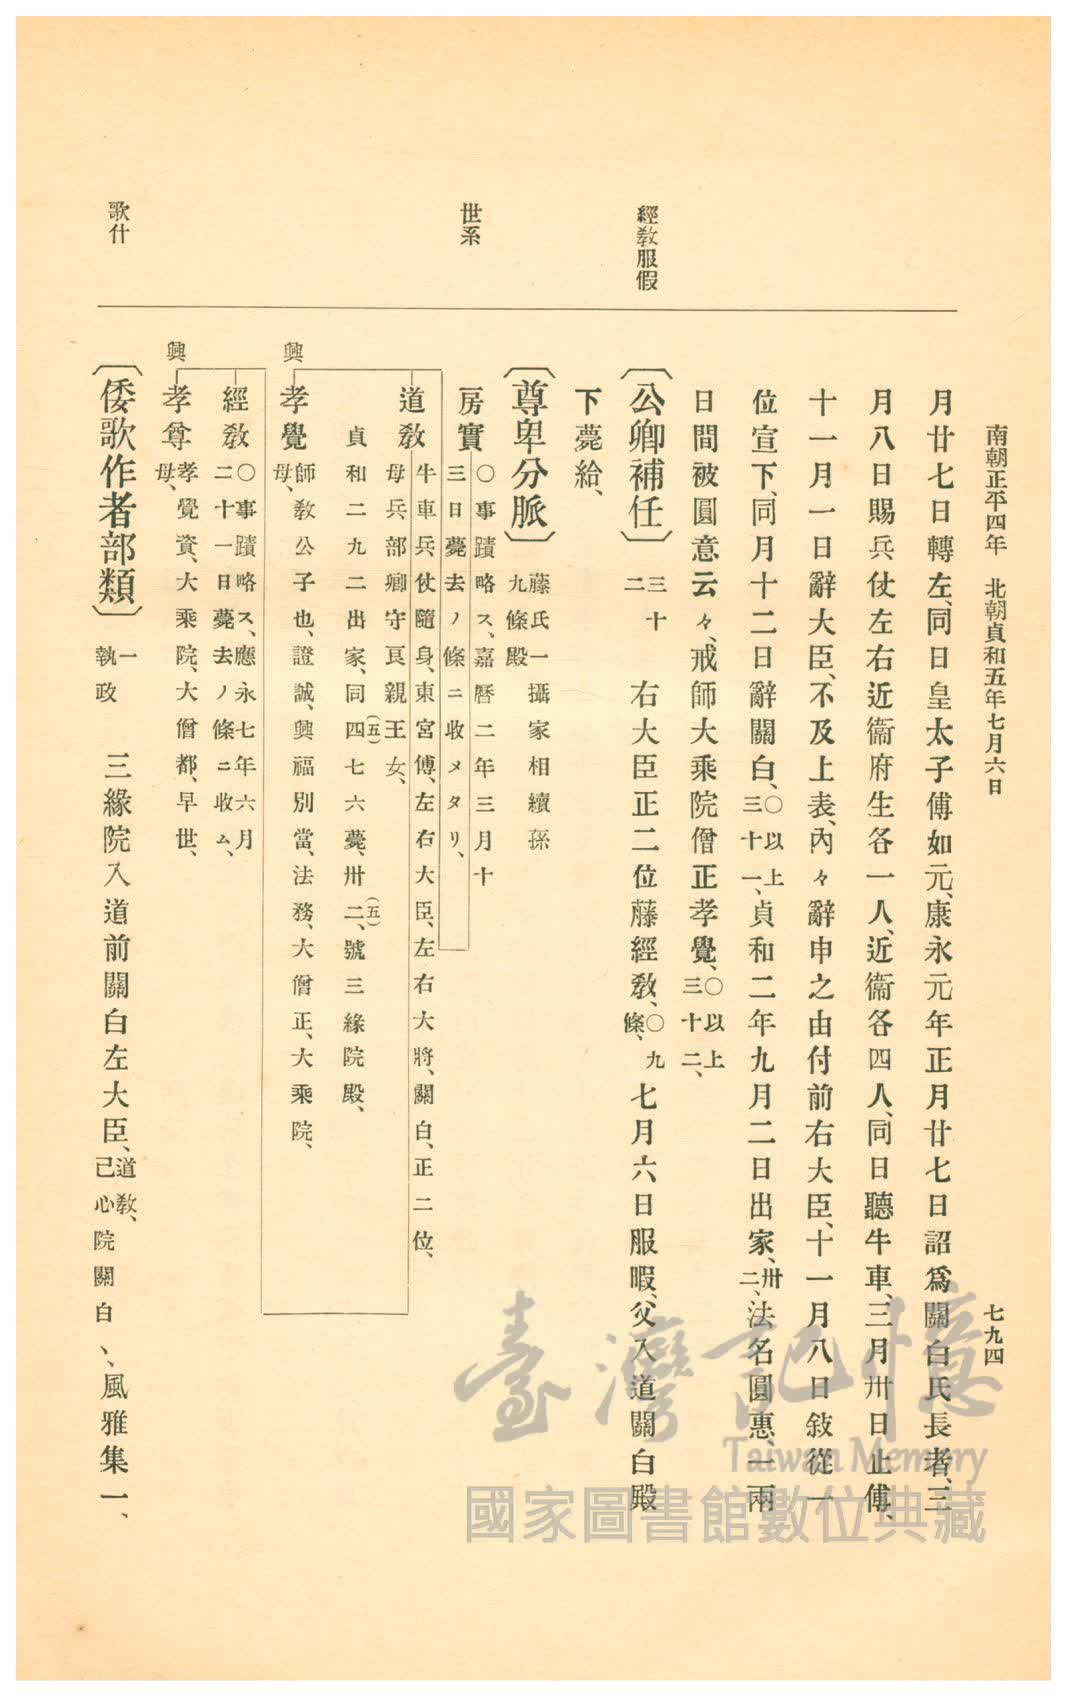 南朝正平四年　北朝貞和五年七月六日
七九四
月廿七日轉左、同日皇太子傅如元、康永元年正月廿七日詔爲關白氏長者、三
月八日賜兵仗左右近衞府生各一人、近衞各四人、同日聽牛車、三月卅日止傅、
十一月一日辭大臣、不及上表、內々辭申之由付前右大臣、十一月八日敍從一
位宣下、同月十二日辭關白、○以上三十一、貞和二年九月二日出家、卅二、法名圓惠、一兩
日間被圓意云々、戒師大乘院僧正孝覺、○以上三十二、
經敎服假
〔公卿補任〕三十二　右大臣正二位藤經敎、○九條、七月六日服暇、父入道關白殿
下薨給、
世系
〔尊卑分脈〕藤氏一　攝家相續孫
九條殿
房實
○事蹟略ス、嘉曆二年三月十
三日薨去ノ條ニ收メタリ、
道敎
牛車兵仗隨身、東宮傅、左右大臣、左右大將、關白、正二位、
母兵部卿守良親王女、
貞和二九二出家、同四(五)七六薨、卅二(五)、號三緣院殿、
興
孝覺
師敎公子也、證誠、興福別當、法務、大僧正、大乘院、
母、
經敎
○事蹟略ス、應永七年六月
二十一日薨去ノ條ニ收ム、
興
孝尊
孝覺資、大乘院、大僧都、早世、
母、
歌什
〔倭歌作者部類〕一執政　三緣院入道前關白左大臣、道敎、己心院關白、、風雅集一、
臺灣記憶
Taiwan Memory
國家圖書館數位典藏